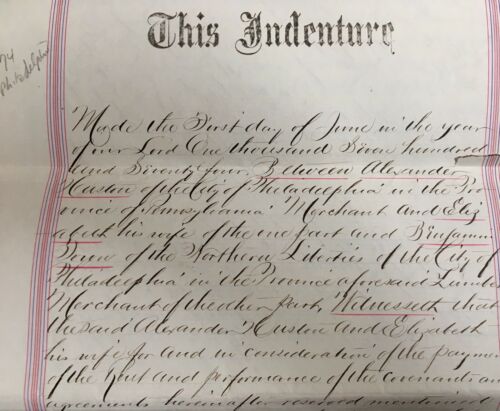 This Indenture
74
Philadelphia
Made the First day of June in the year
of our Lord One thousand Seven hundred
and Seventy four, Between Alexander
Huston of the City of Philadelphia in the Pro
vince of Pennsylvania Merchant and Eliz
abeth his wife of the one part and Benjamin
Town of the Northern Liberties of the City of
Philadelphia in the Province aforesaid Lumber
Merchant of the other part, Witnesseth that
the said Alexander Huston and Elizabeth
his wife for and in consideration of the payme
of the Rent and performance of the covenants an
agreements hereinafter reserved mentioned